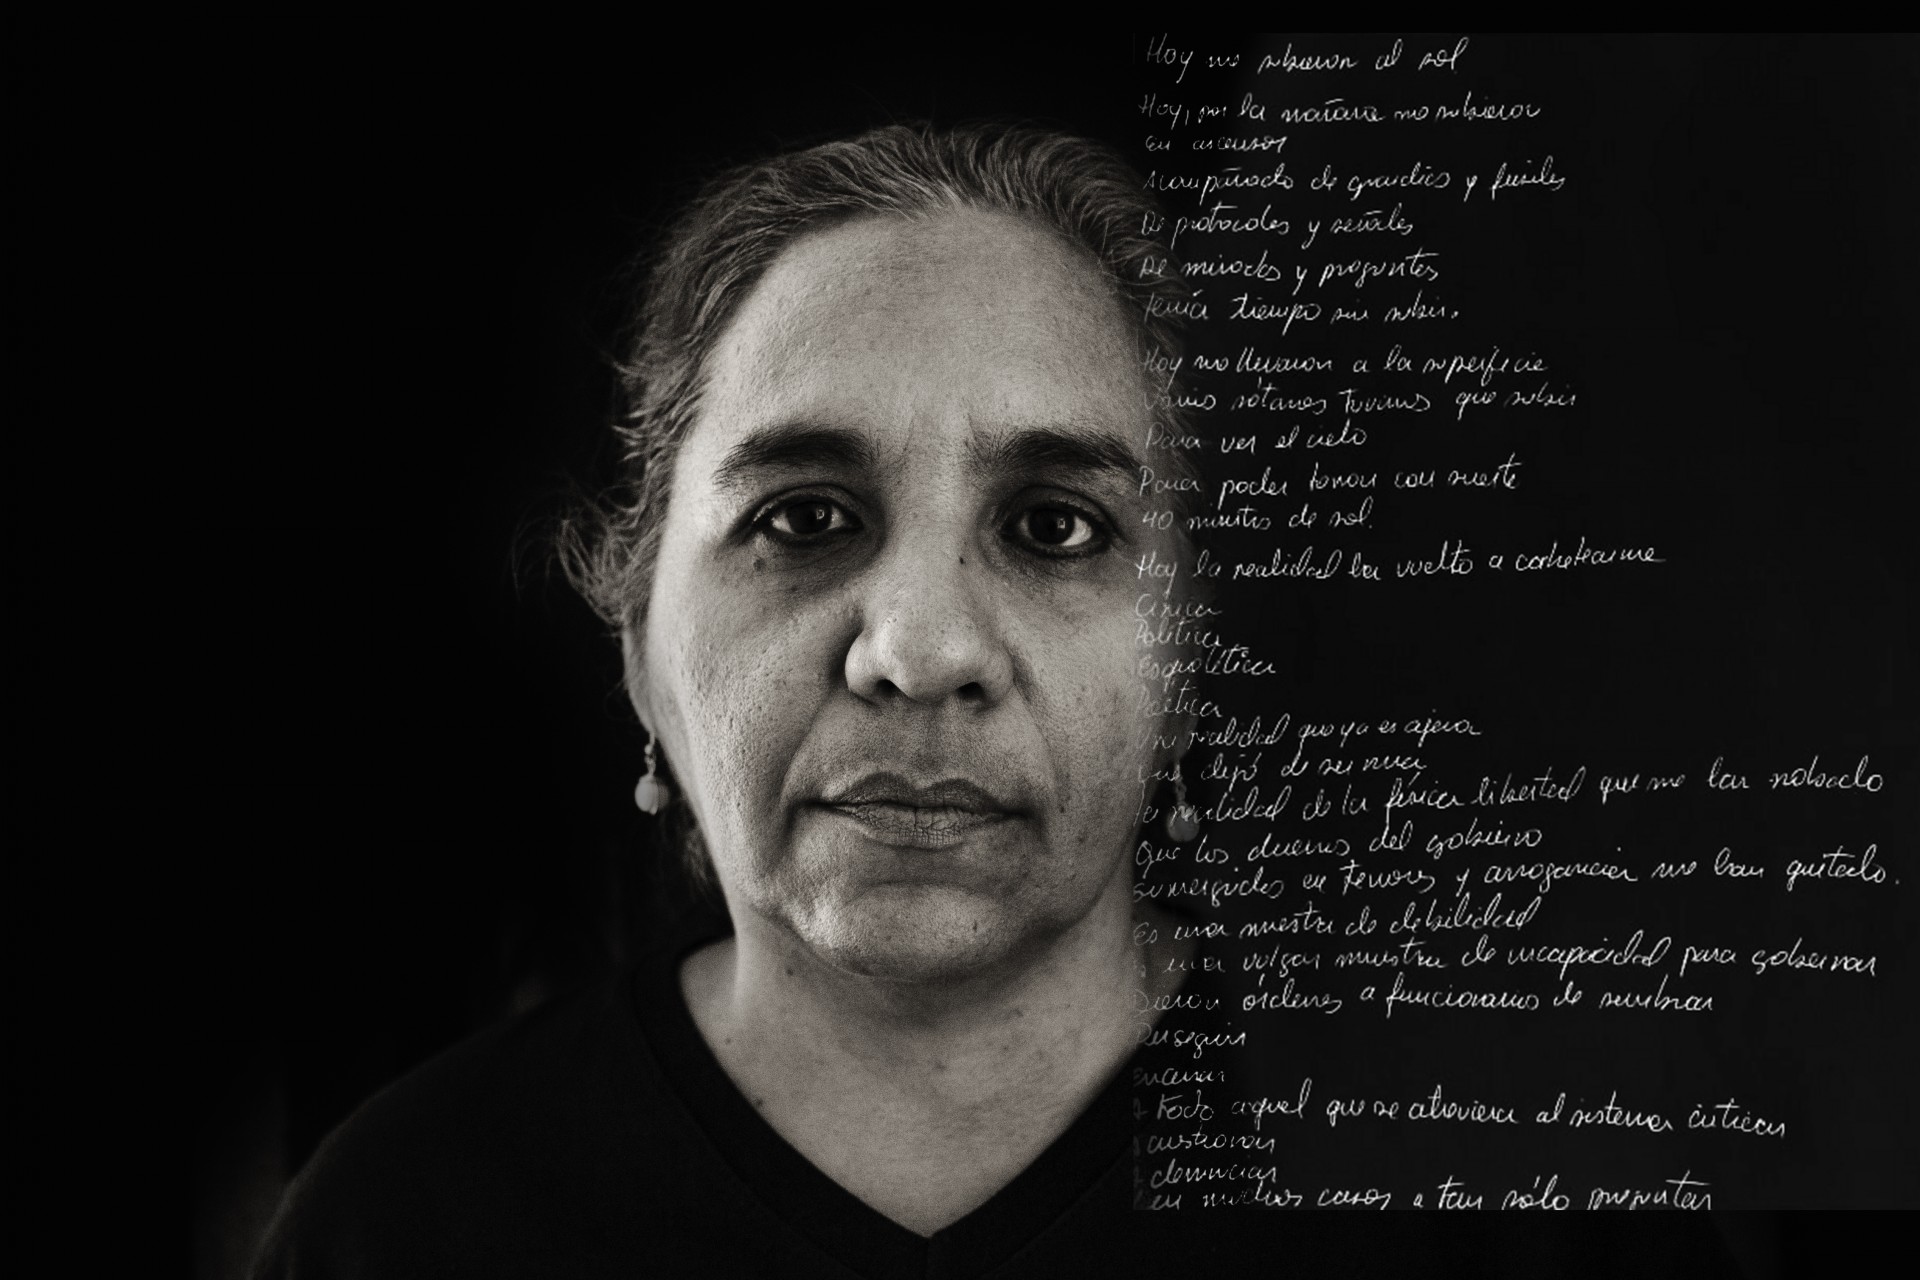 Hoy me subieron al sol
Hoy, por la mañana me subieron
en ascensor
Acompañado de guardias y fusiles
De protocolos y señales
De miradas y preguntas
Tenía tiempo sin subir.
Hoy me llevaron a la superficie
Varios sótanos tuvimos que subir
Para ver el cielo
Para poder tomar con suerte
40 minutos de sol.
Hoy la realidad ha vuelto a cachetearme
Cínica
Política
Esquelética
Poética
Una realidad que ya es ajena
Que dejó de ser mía
La realidad de la física libertad que me han robado
Que los dueños del gobierno
sumergidos en temores y arrogancia me han quitado.
Es una muestra de debilidad
Es una vulgar muestra de incapacidad para gobernar
Dieron órdenes a funcionarios de sembrar
Perseguir
Encerrar
A todo aquel que se atreviera al sistema criticar
A cuestionar
A denunciar
en muchos casos a tan sólo preguntar